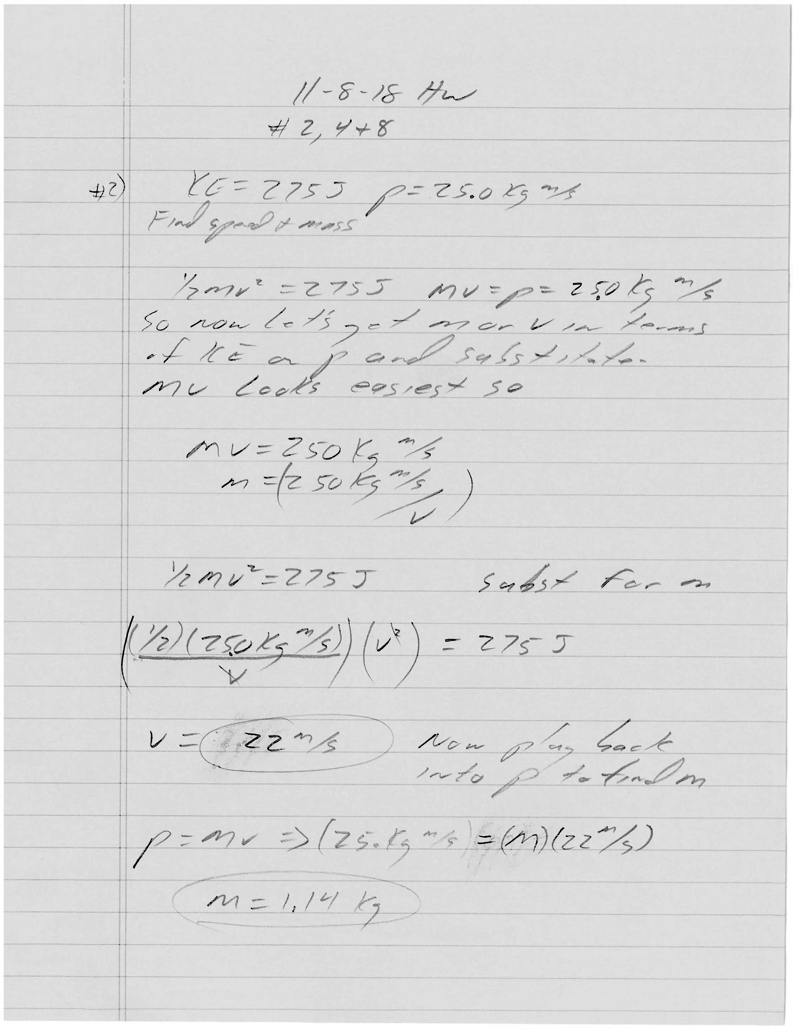 11-8-18 Hw
# 2, 4+8
#2) KE = 275J p = 25.0 Kg m/s
Find speed + mass
1/2mv² = 275J mv = p = 25.0 Kg m/s
So now let's get m or v in terms
of KE or p and substitute.
mv looks easiest so
mv = 250 Kg m/s
m = (250 Kg m/s / v)
1/2mv² = 275J subst for m
((1/2)(25.0 Kg m/s) / v)(v²) = 275 J
v = 22 m/s Now plug back
into p to find m
p = mv => (25. Kg m/s) = (m)(22 m/s)
m = 1.14 Kg